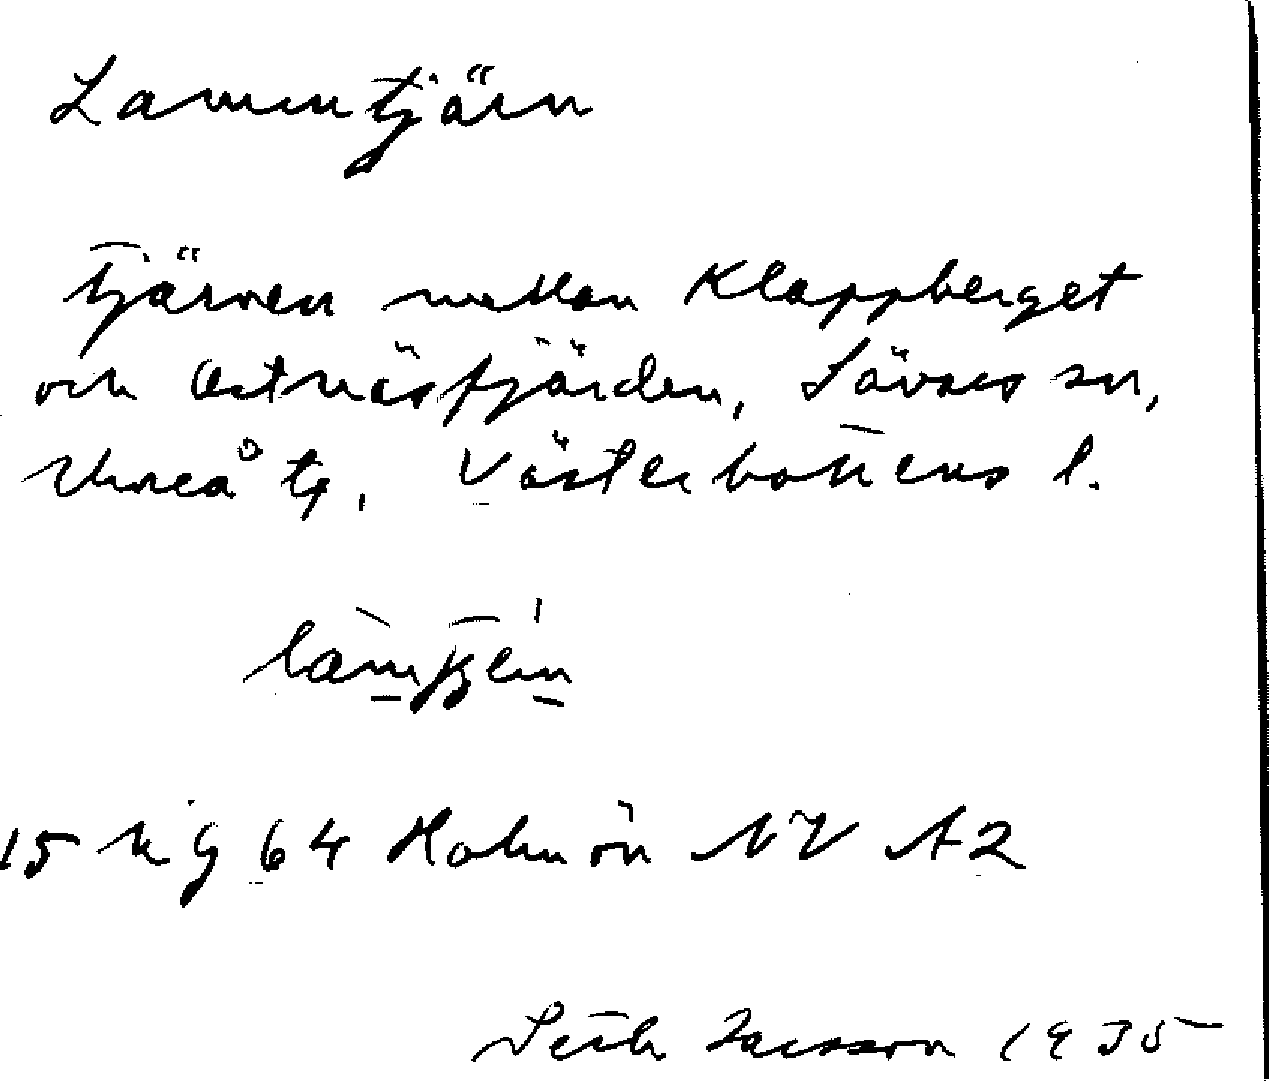 Lamentjärn
Tjärnen mellan Klappberget
och Östnäsfjärden, Sävars sn,
Umeå tg, Västerbottens l.
15 k g 64 Holmön NV A2
Seth 1935